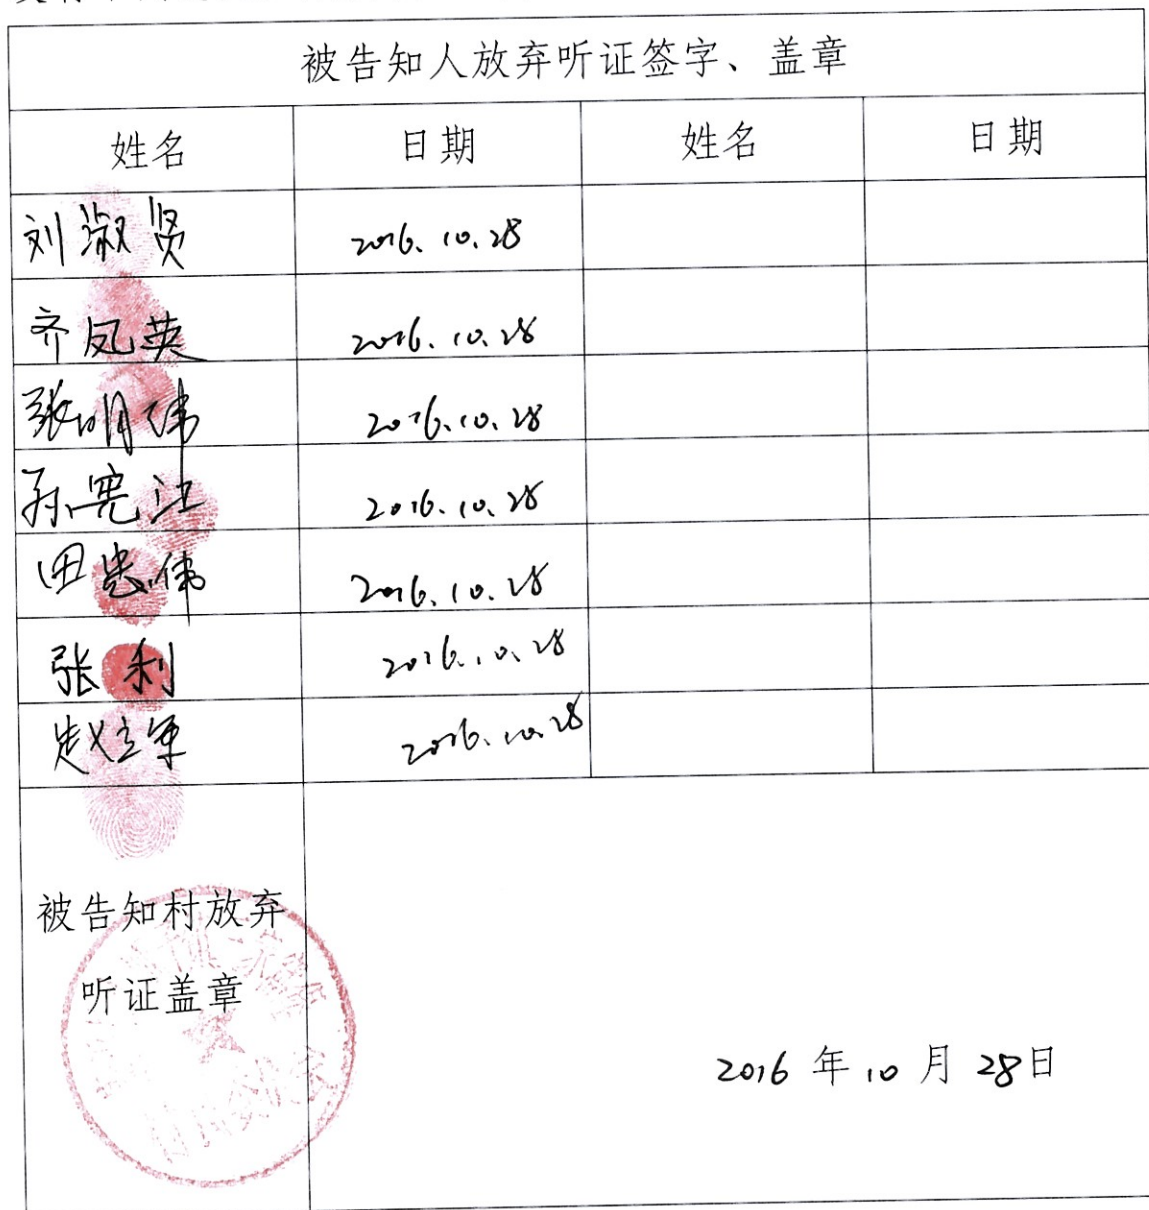 被告知人放弃听证签字、盖章
姓名 日期 姓名 日期
刘淑贤 2016.10.28
齐凤英 2016.10.28
张明伟 2016.10.28
孙宪江 2016.10.28
田忠伟 2016.10.28
张利 2016.10.28
赵立军 2016.10.28
被告知村放弃
听证盖章
2016年10月28日